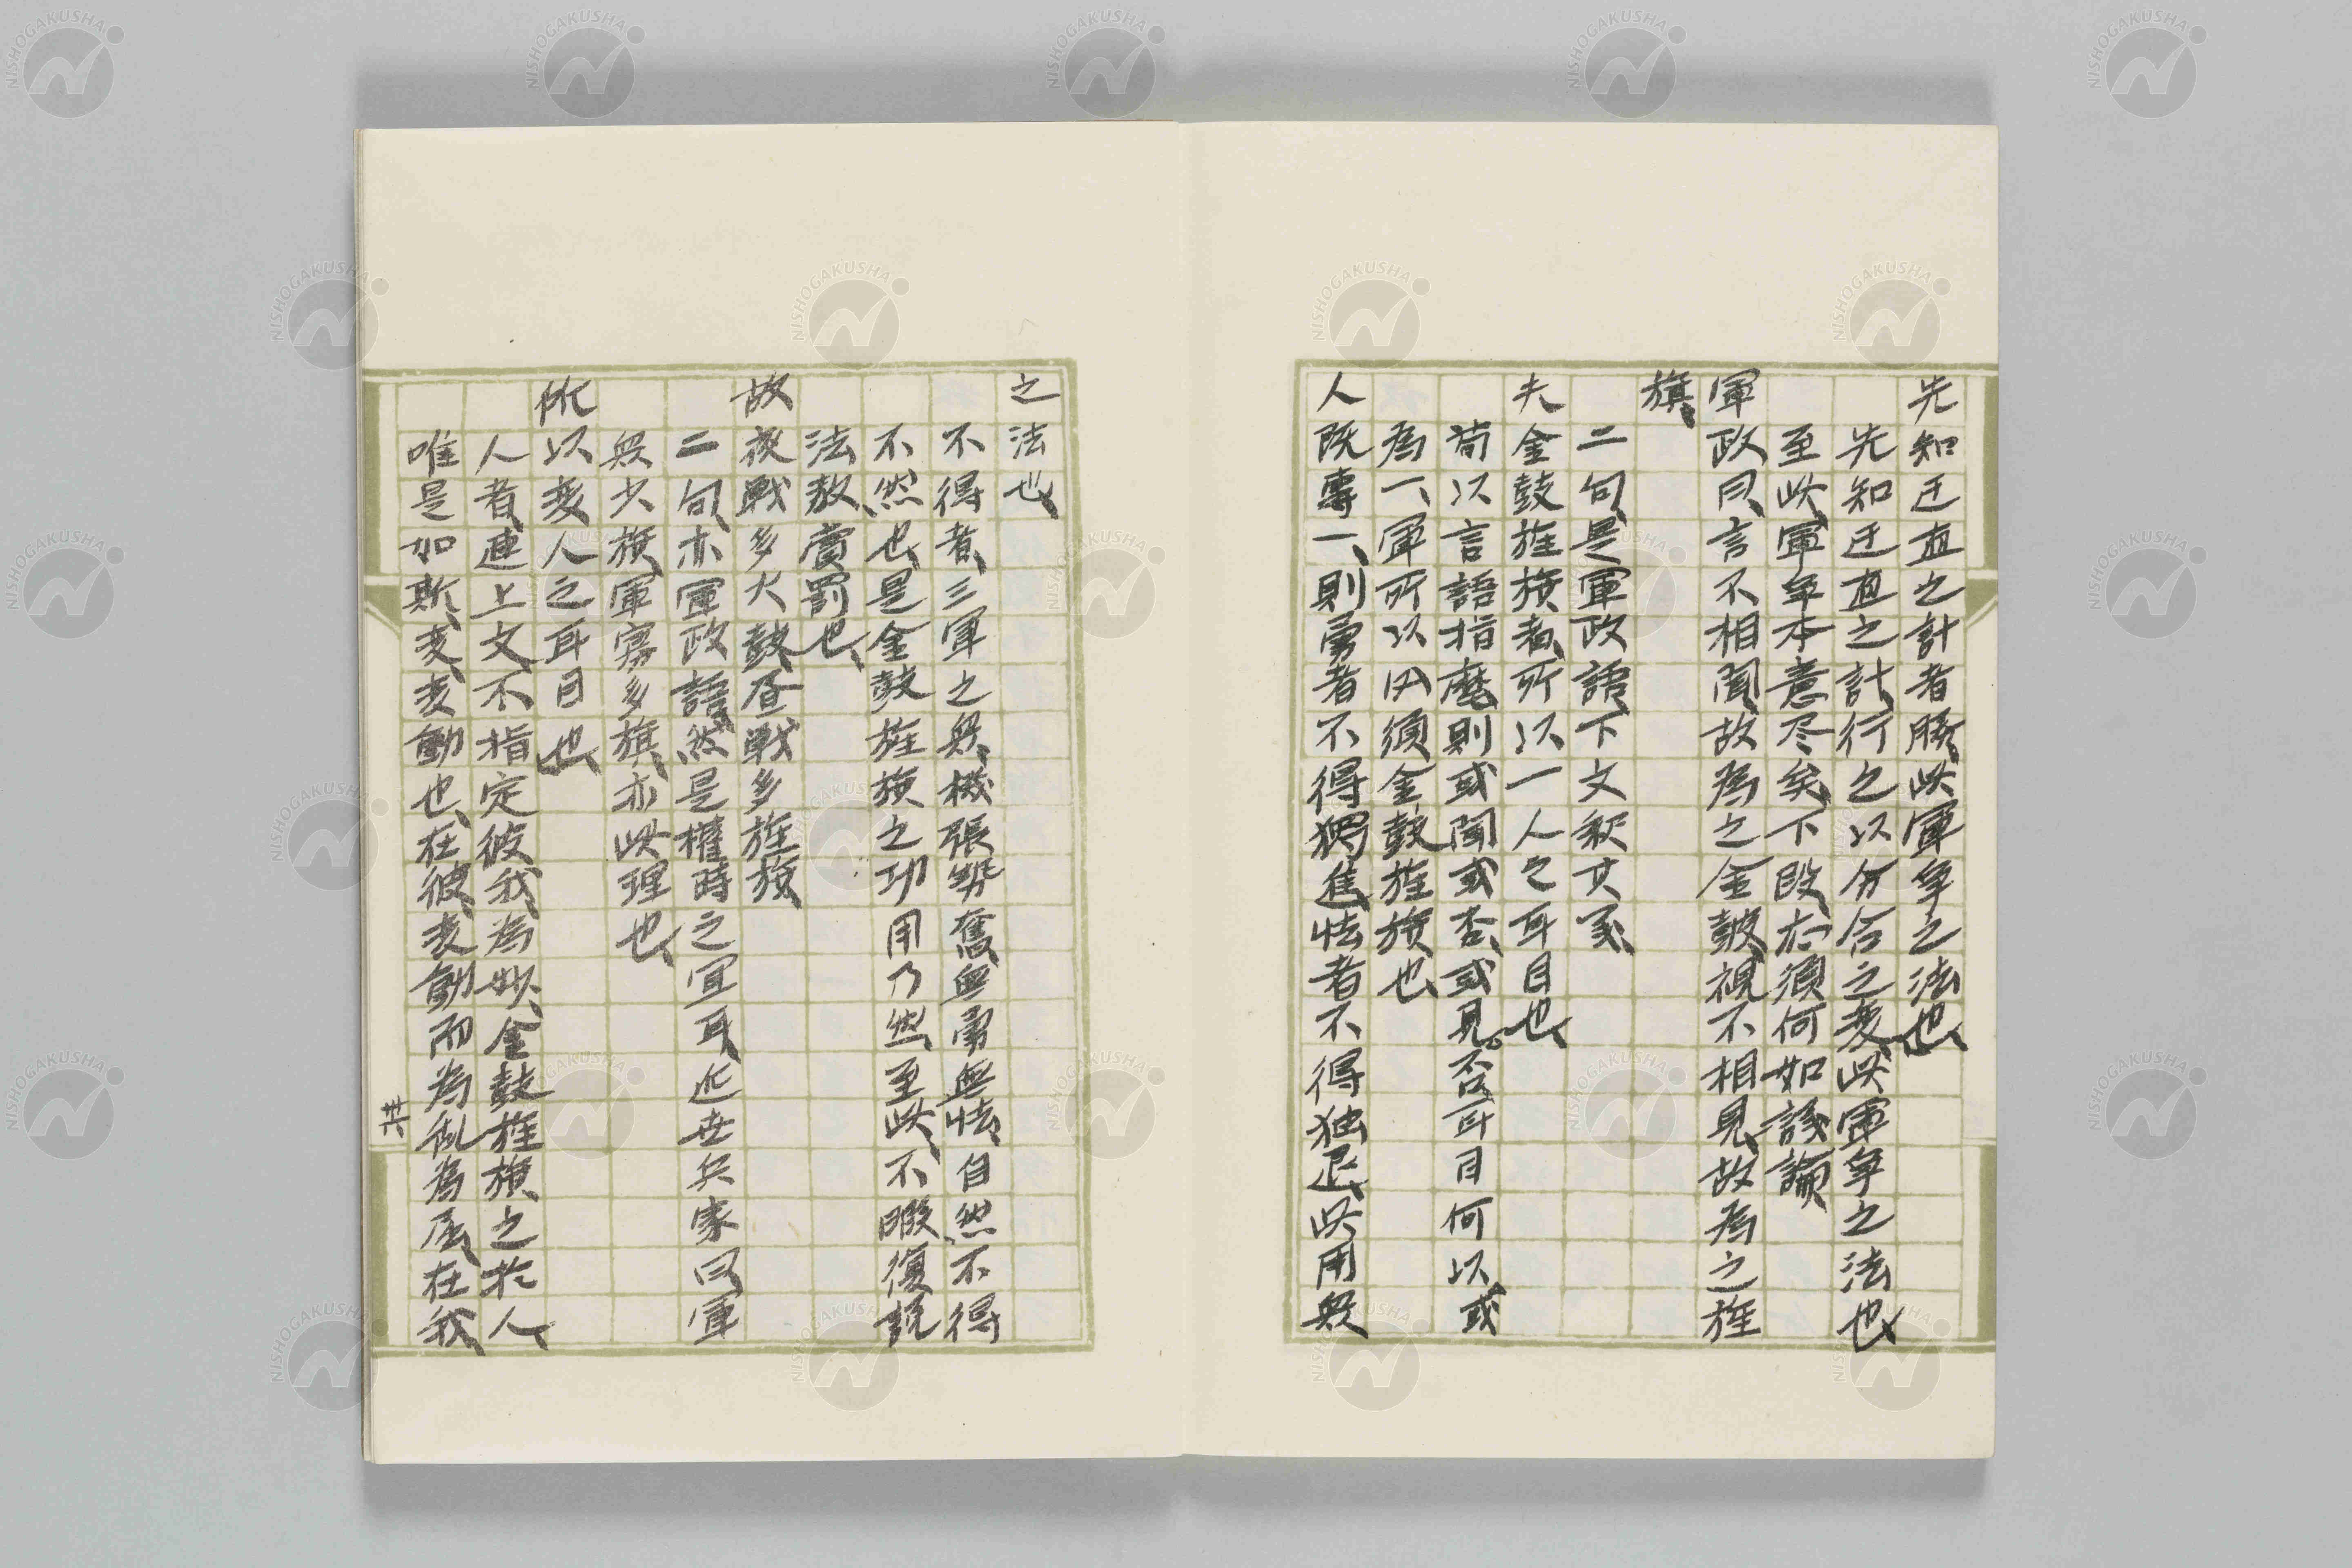 先知迂直之計者勝、此軍争之法也、
先知迂直之計、行之以分合之変、此軍争之法也、
至此、軍争本意尽矣、下段亦須何如議論、
軍政曰、言不相聞、故為之金鼓、視不相見、故為之旌
旗、
二句、是軍政語、下文釈其義、
夫金鼓旌旗者、所以一人之耳目也、
苟以言語指麾、則或聞或否、或見或否、耳目何以或
為一、軍所以必須金鼓旌旗也
人既専一、則勇者不得獨進、怯者不得独退、此用衆
之法也、
不得者、三軍之衆、機張勢奮、無勇無怯、自然不得
不然也、是金鼓旌旗之功用乃然、至此、不暇復説
法敎、賞罰也、
故夜戰多火鼓、昼戰多旌旗、
二句、亦軍政語、然是權時之宜耳、近世兵家曰、軍
衆少旗、軍寡多旗、亦此理也、
所以変人之耳目也、
人者、連上文、不指定彼我為妙、金鼓旌旗、之於人、
唯是如斯、変、変動也、在彼、変動而為乱為屈、在我、
卄六
NISHOGAKUSHA